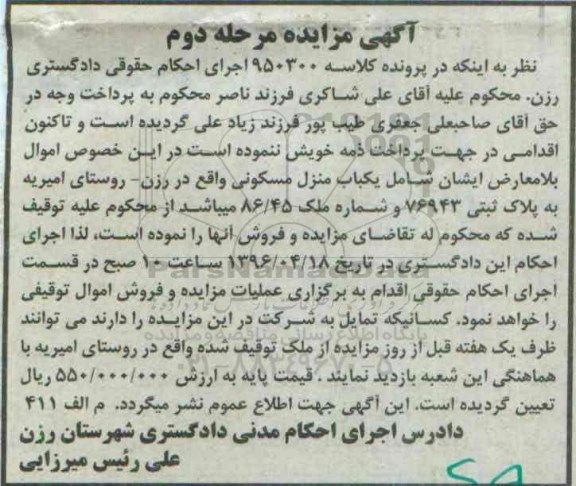 آگهی مزایده مرحله دوم
نظر به اینکه در پرونده کلاسه ۹۵۰۳۰۰ اجرای احکام حقوقی دادگستری
رزن. محکوم علیه آقای علی شاکری فرزند ناصر محکوم به پرداخت وجه در
حق آقای صاحبعلی جعفری طیب پور فرزند زیاد علی گردیده است و تاکنون
اقدامی در جهت پرداخت ذمه خویش ننموده است در این خصوص اموال
بلامعارض ایشان شامل یکباب منزل مسکونی واقع در رزن- روستای امیریه
به پلاک ثبتی ۷۶۹۴۳ و شماره ملک ۸۶/۴۵ میباشد از محکوم علیه توقیف
شده که محکوم له تقاضای مزایده و فروش آنها را نموده است، لذا اجرای
احکام این دادگستری در تاریخ ۱۳۹۶/۰۴/۱۸ ساعت ۱۰ صبح در قسمت
اجرای احکام حقوقی اقدام به برگزاری عملیات مزایده و فروش اموال توقیفی
را خواهد نمود. کسانیکه تمایل به شرکت در این مزایده را دارند می توانند
ظرف یک هفته قبل از روز مزایده از ملک توقیف شده واقع در روستای امیریه با
هماهنگی این شعبه بازدید نمایند . قیمت پایه به ارزش ۵۵۰/۰۰۰/۰۰۰ ریال
تعیین گردیده است. این آگهی جهت اطلاع عموم نشر میگردد. م الف ۴۱۱
دادرس اجرای احکام مدنی دادگستری شهرستان رزن
علی رئیس میرزایی